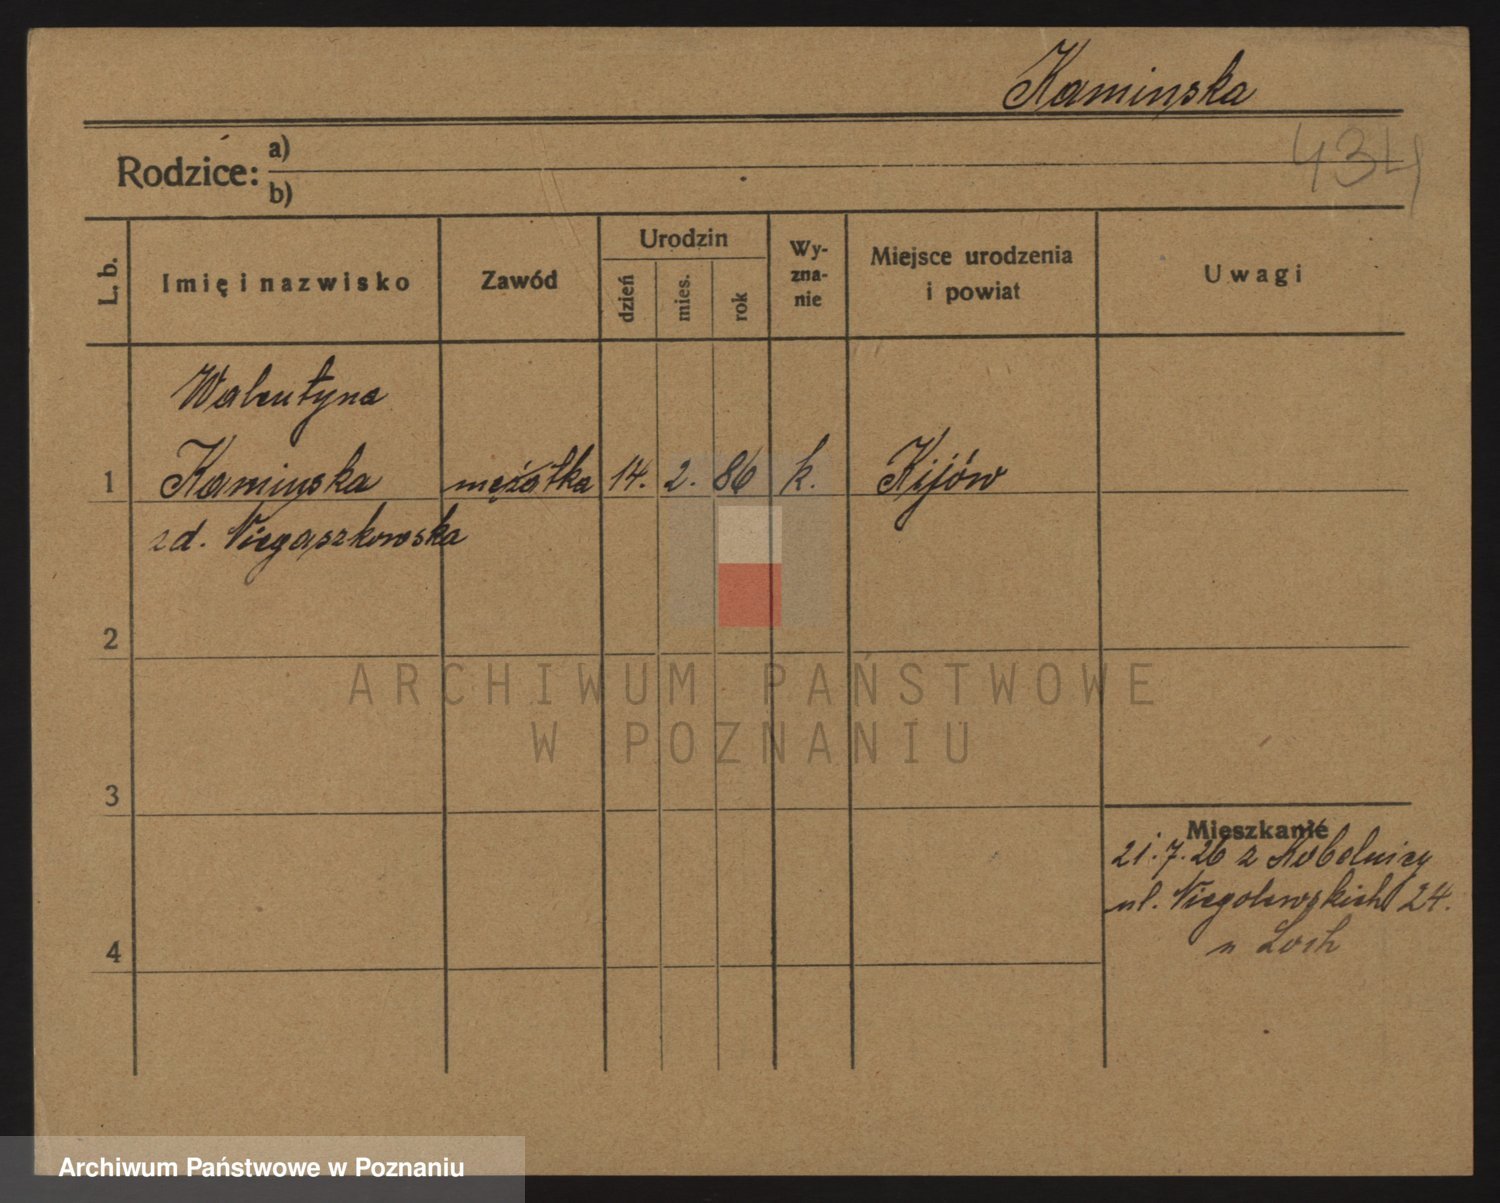 Kamińska
434
Rodzice: a)
b)
L. b.
Imię i nazwisko
Zawód
Urodzin
dzień
mies.
rok
Wy-
zna-
nie
Miejsce urodzenia
i powiat
Uwagi
Walentyna
1 Kamińska mężatka 14. 2. 86 k. Kijów
zd.
2
3
4
Mieszkanie
21.7.26 z Kobelnicy
ul. Niegolewskich 24.
ARCHIWUM PAŃSTWOWE
W POZNANIU
Archiwum Państwowe w Poznaniu